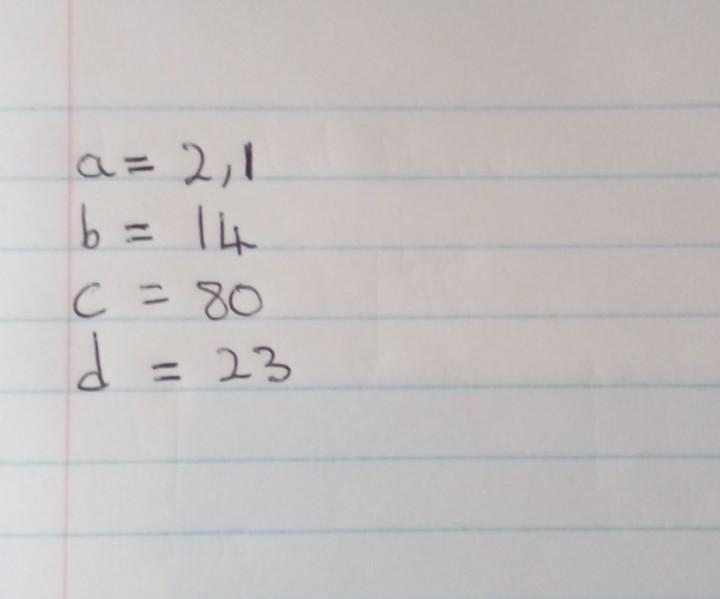 a = 2,1
b = 14
c = 80
d = 23